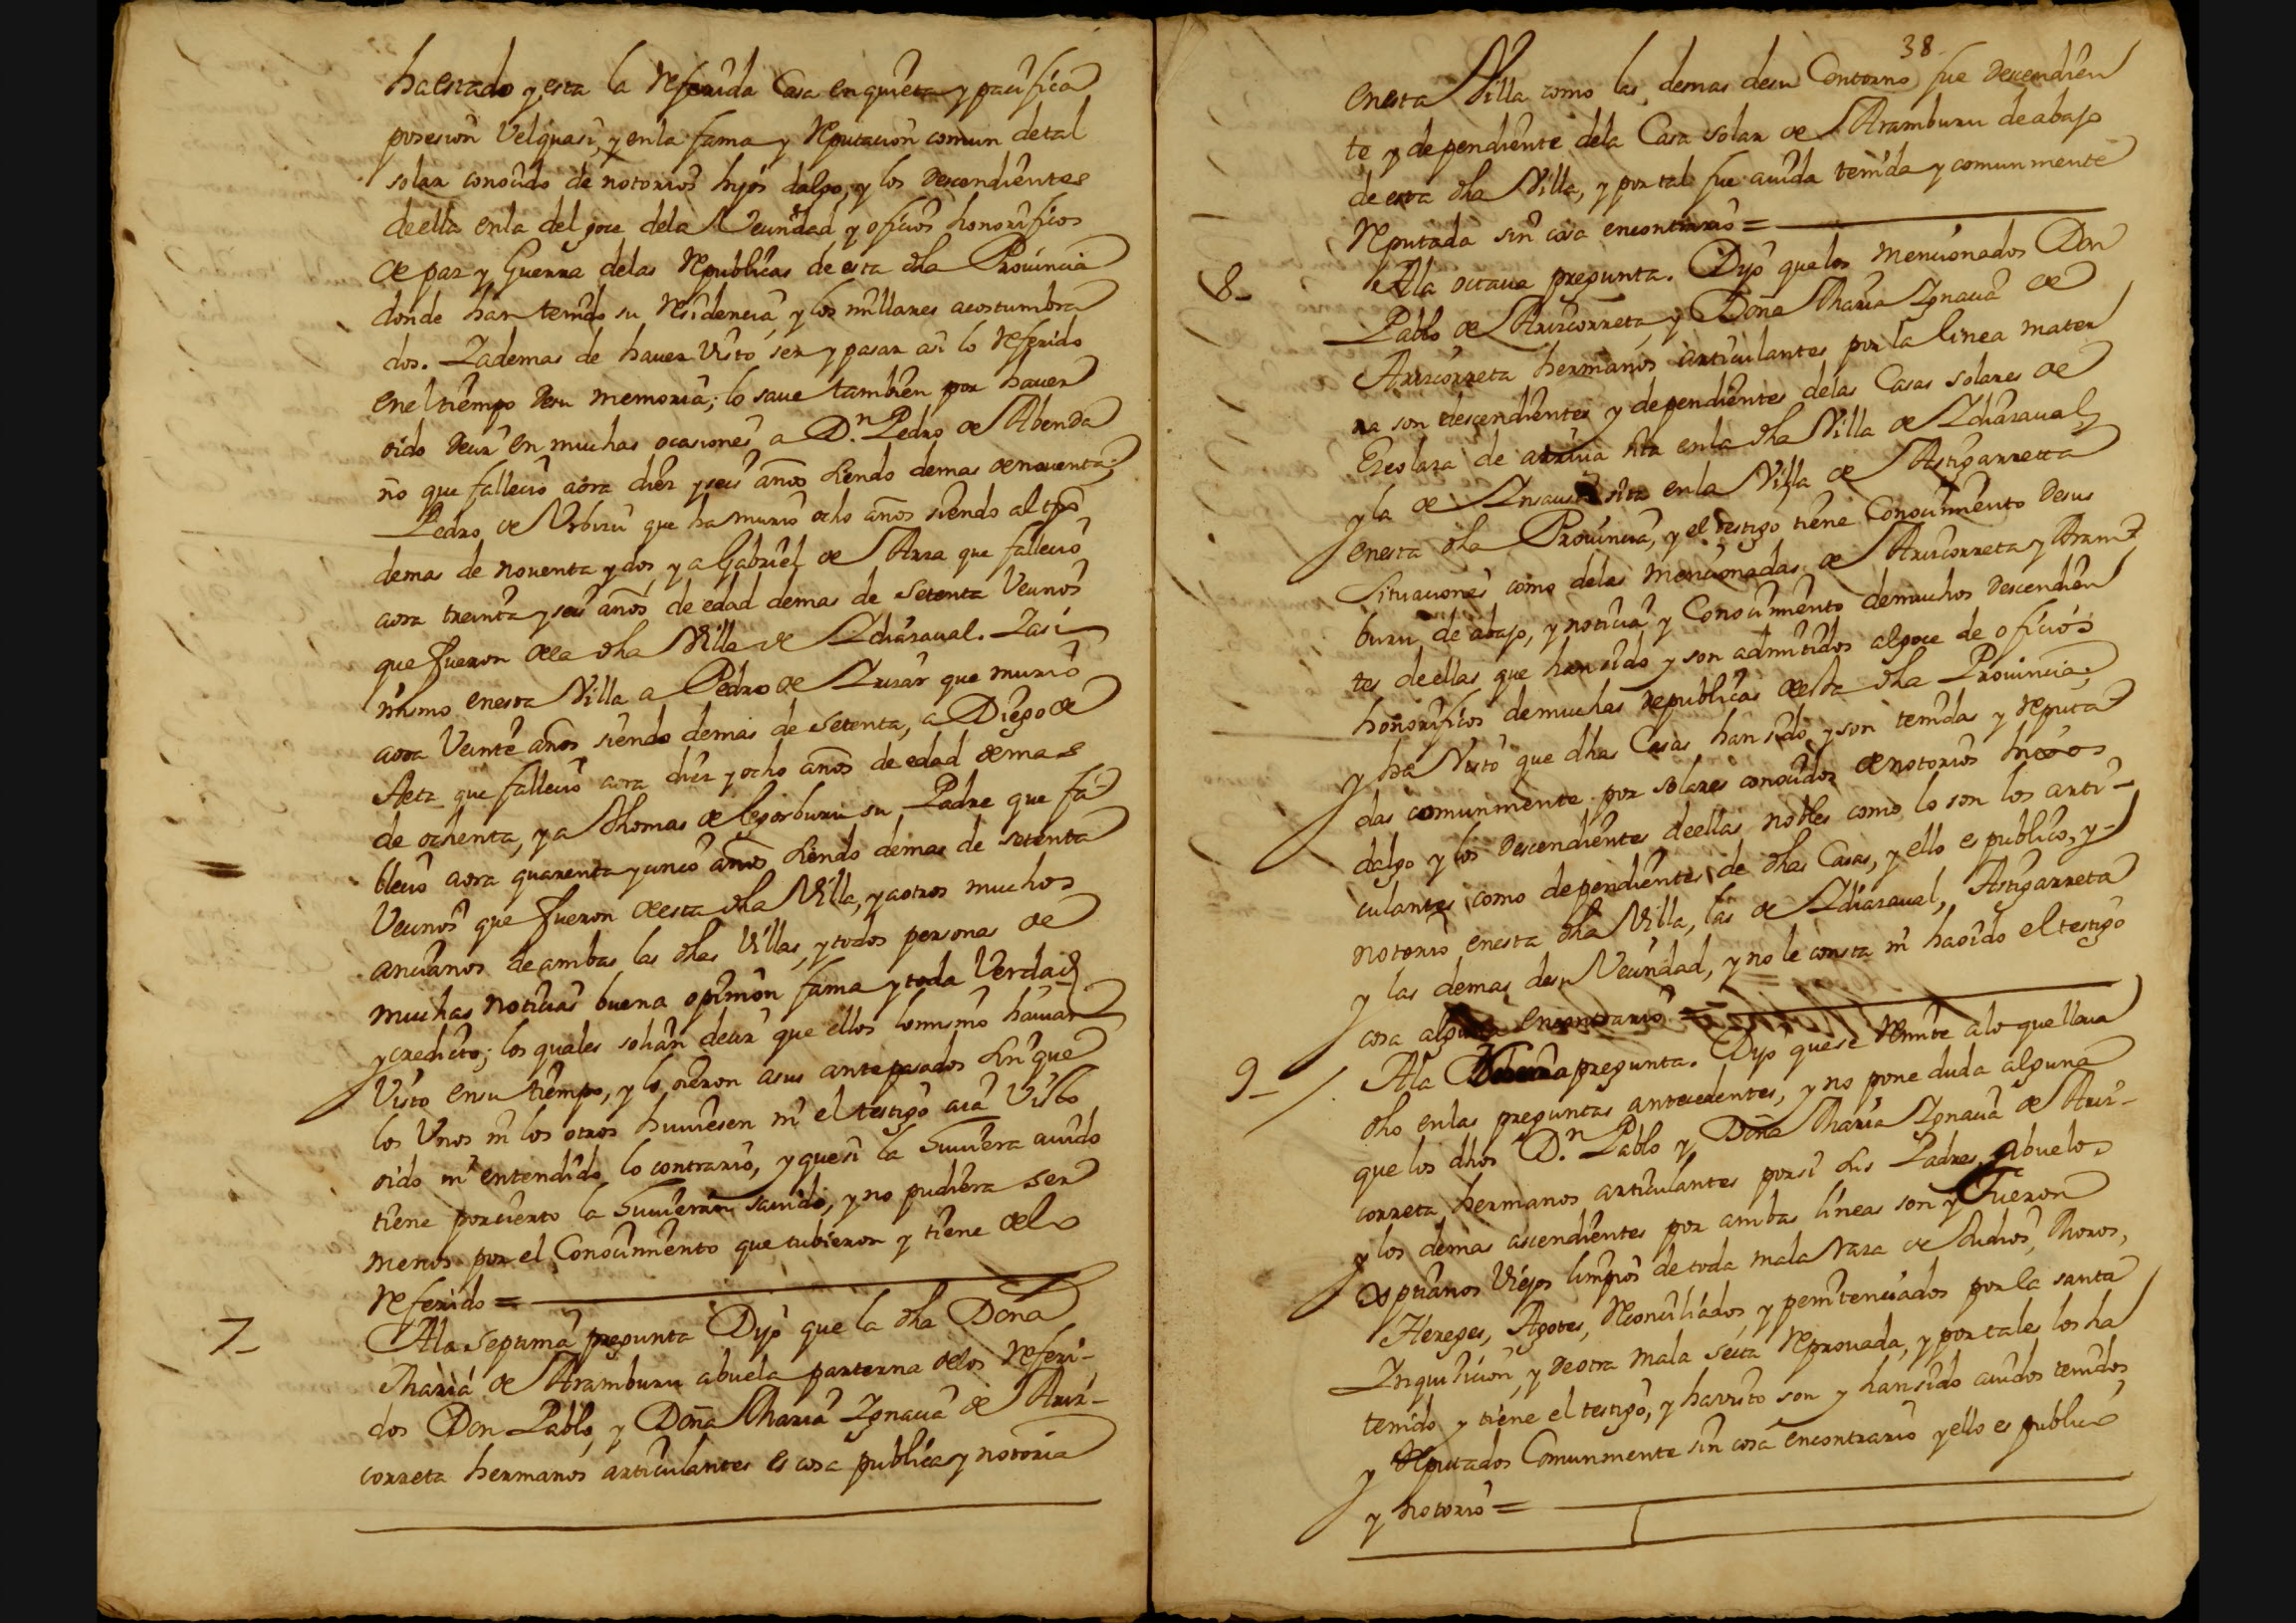 ha estado y esta la referida Casa en quieta y pacifica
posesion Vel quasi, y en la fama y reputacion comun de tal
solar conocido de notorios hijos dalgo, y los descendientes
de ella en la del goce dela Vecindad y oficios honorificos
de paz y Guerra delas republicas de esta dha Provincia
donde han tenido su residencia y los millares acostumbra
dos. Y ademas de haver visto ser y pasar asi lo referido
en el tiempo de su memoria; lo save tambien por haver
oido decir en muchas ocasiones a D.n Pedro de Abenda
ño que fallecio aora diez y seis años siendo demas de noventa;
Pedro de Urbizu que ha murio ocho años siendo al tpo
demas de noventa y dos, y a Gabriel de Arra que fallecio
aora treinta y seis años de edad demas de setenta Vecinos
que fueron dela dha Villa de Ydiazaval. Y asi
mismo en esta Villa a Pedro de Yrizar que murio
aora veinte años siendo demas de setenta, a Diego de
Aeta que fallecio aora diez y ocho años de edad demas
de ochenta, y a Thomas de legorburu su Padre que fa
llecio aora quarenta y cinco años siendo demas de setenta
Vecinos que fueron de esta dha Villa, y a otros muchos
ancianos de ambas las dhas Villas, y todos personas de
muchas noticias buena opinion fama y toda Verdad
y credito; los quales solian decir que ellos lo mismo havian
Visto en su tiempo, y lo oieron a sus antepasados sin que
los Unos ni los otros huviesen ni el testigo aia Visto
oido ni entendido lo contrario, y que si la huviera avido
tiene por cierto la huvieran savido, y no pudiera ser
menos por el Conocimiento que tubieron y tiene delo
referido =
7- Ala septima pregunta Dijo que la dha Doña
Maria de Aramburu abuela parterna delos referi-
dos Don Pablo, y Doña Maria Ygnacia de Ariz-
correta hermanos articulantes es cosa publica y notoria
38
en esta Villa como las demas de su Contorno fue descendien
te y dependiente dela Casa solar de Aramburu de abajo
de esta dha Villa, y por tal fue avida tenida y comunmente
reputada sin cosa encontrario =
8- Ala octava pregunta. Dijo que los mencionados Don
Pablo de Arizcorreta, y Doña Maria Ygnacia de
Arizcorreta hermanos articulantes por la linea mater
na son descendientes y dependientes delas Casas solares de
Ezeolaza de arriva sita en la dha Villa de Ydiazaval,
y la de Ynsausti sita en la Villa de Astigarreta
en esta dha Provincia, y el testigo tiene Conocimiento de sus
Situaciones como delas mencionadas de Arizcorreta y Aram
buru de abajo, y noticia y Conocimiento de muchos descendien
tes de ellas que han sido y son admitidos al goce de oficios
honorificos de muchas republicas de esta dha Provincia;
y ha Visto que dhas Casas han sido y son tenidas y reputa
das comunmente por solares conocidos de notorios hijos
dalgo y los descendientes de ellas nobles como lo son los arti-
culantes como dependientes de dhas Casas, y ello es publico, y-
notorio en esta dha Villa, las de Ydiazaval, Astigarreta
y las demas de su Vecindad, y no le consta ni ha oido el testigo
cosa alguna encontrario =
9- Ala Novena pregunta. Dijo que se remite alo que lleva
dho en las preguntas antecedentes, y no pone duda alguna
que los dhos D.n Pablo y Doña Maria Ygnacia de Ariz-
correta hermanos articulantes por si sus Padres, abuelos
y los demas ascendientes por ambas lineas son y fueron
Xptianos Viejos limpios de toda mala raza de Judios, Moros,
Hereges, Agotes, Reconciliados, y penitenciados por la santa
Ynquisicion, y de otra mala secta reprovada, y por tales los ha
tenido y tiene el testigo, y ha visto son y han sido avidos tenidos,
y reputados Comunmente sin cosa encontrario y ello es publico
y notorio =